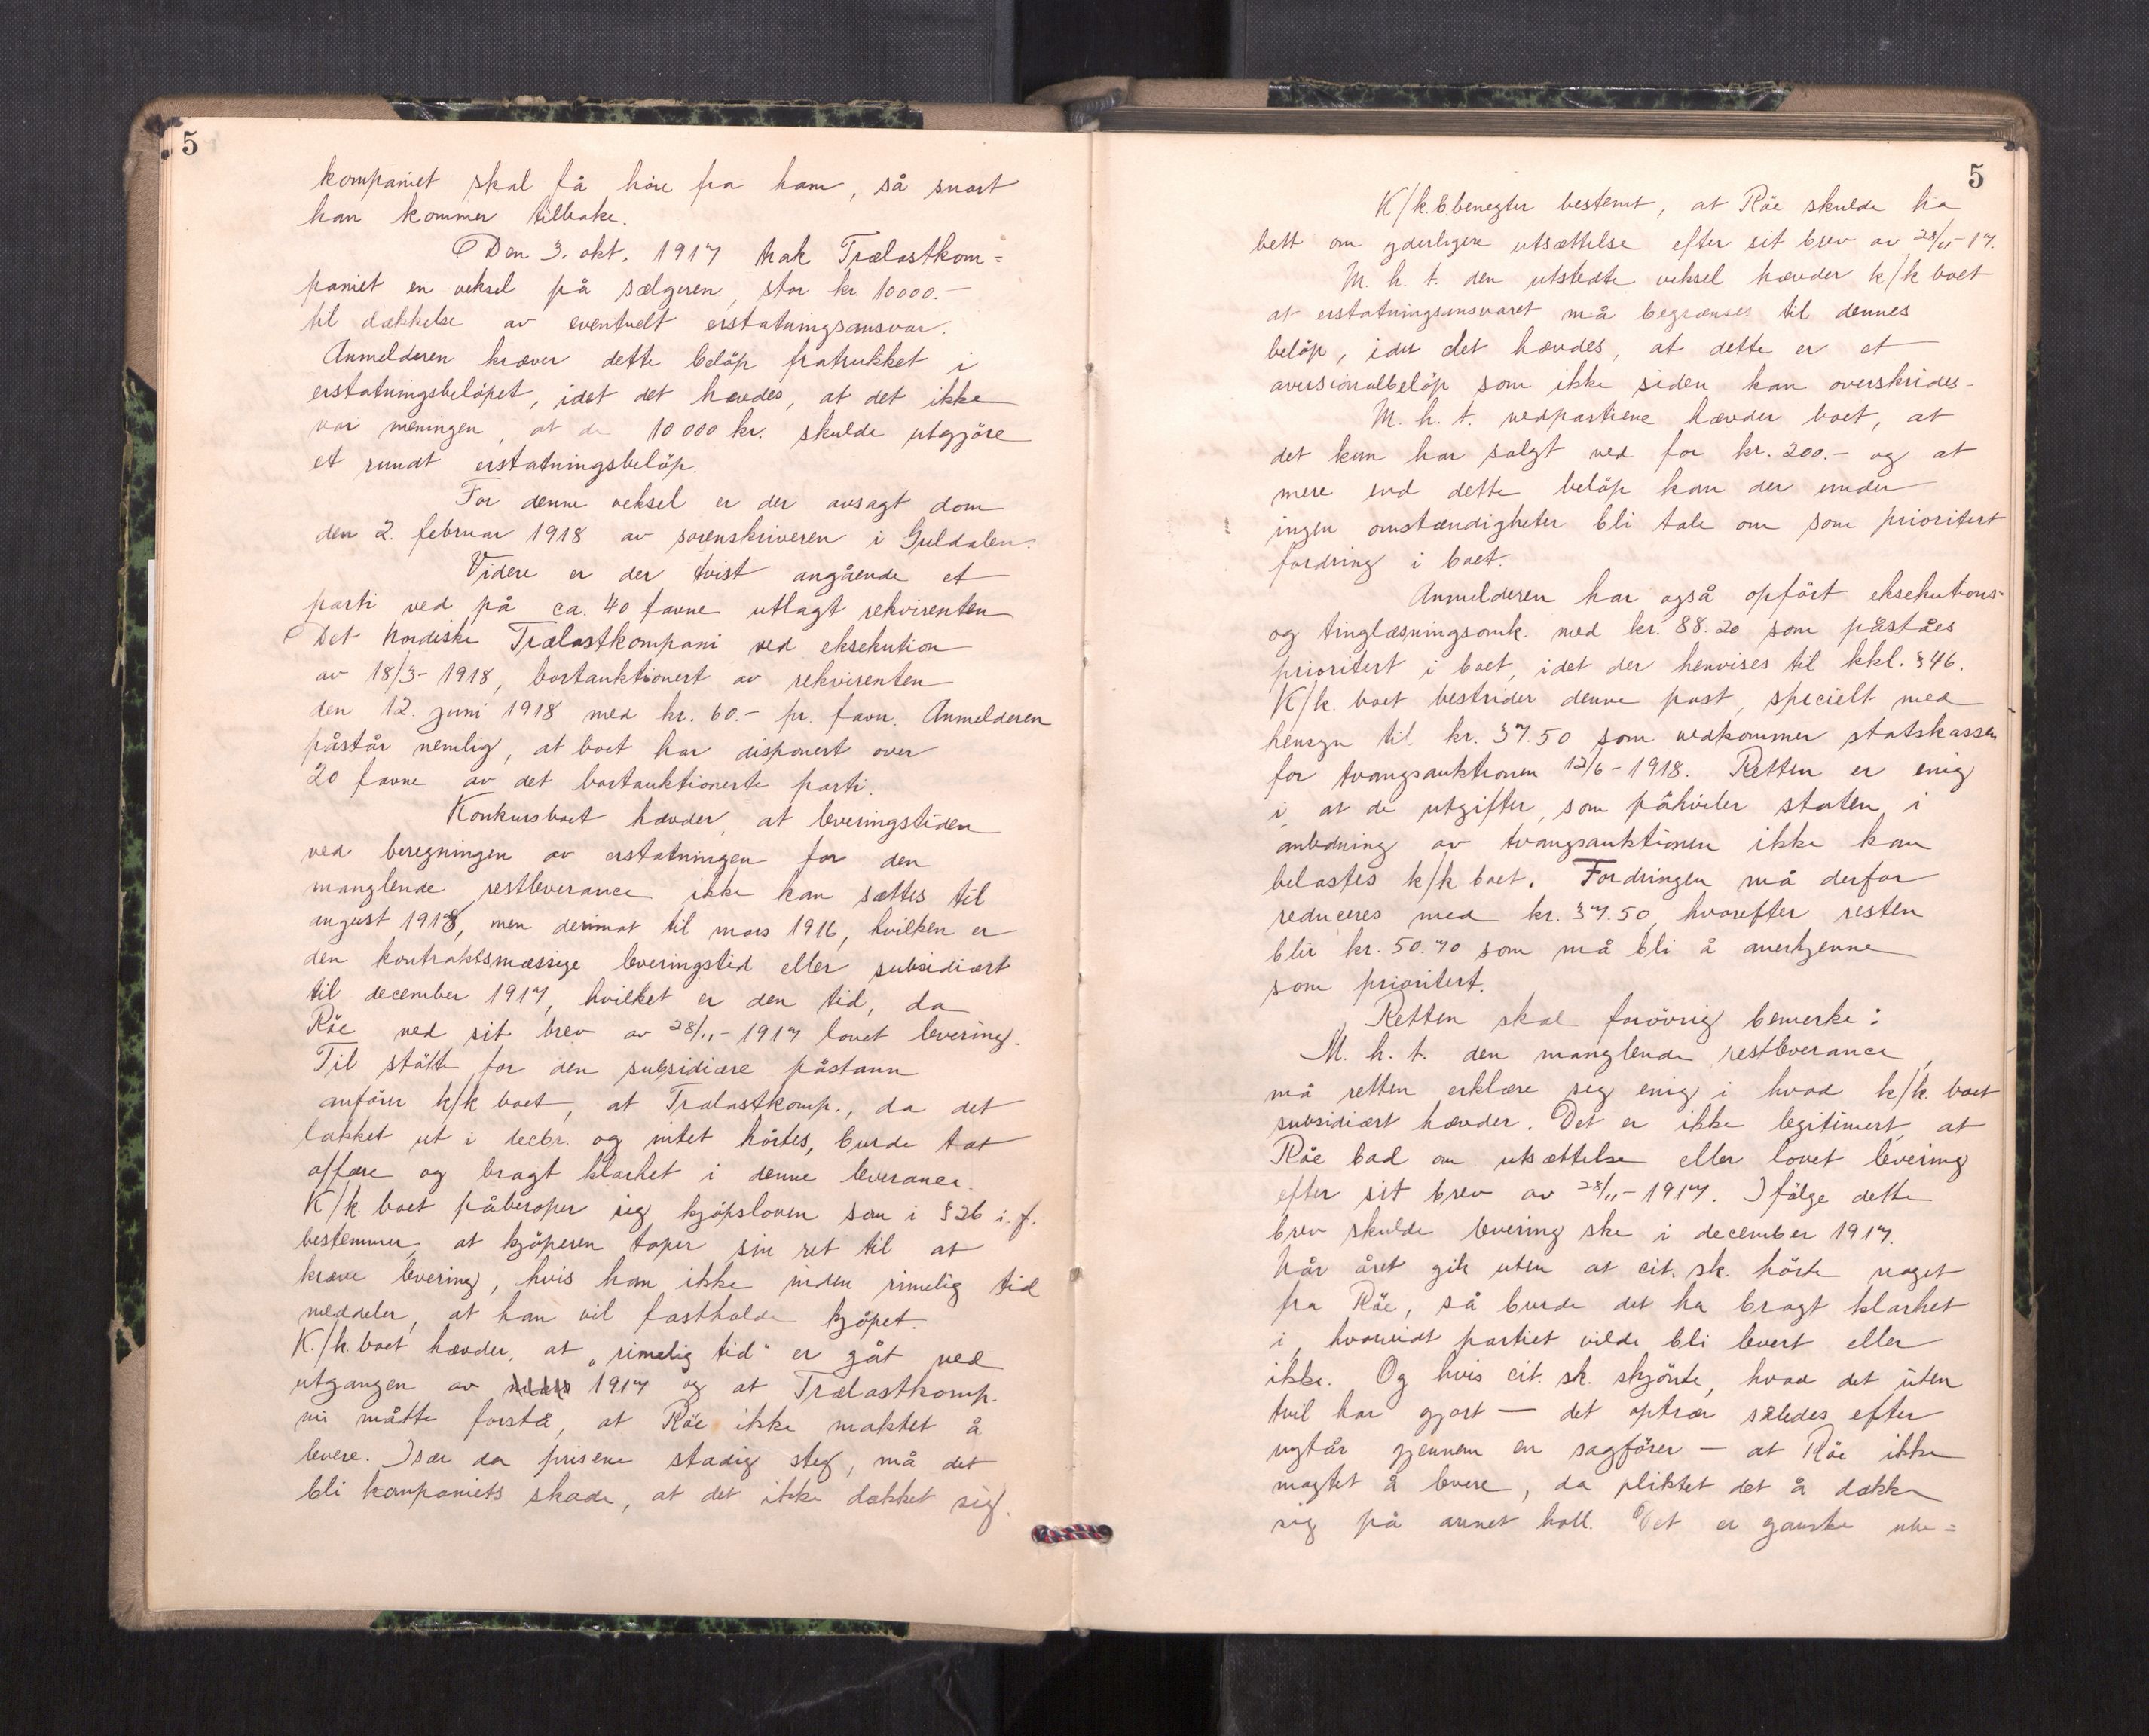 5
kompaniet skal få høre fra ham, så snart
han kommer tilbake.
Den 3. okt. 1917 trak Trælastkom=
paniet en veksel på sælgeren, stor kr. 10000.-
til dækkelse av eventuelt erstatningsansvar.
Anmelderen kræver dette beløp fratrukket i
erstatningsbeløpet, idet det hævdes, at det ikke
var meningen, at de 10 000 kr. skulde utgjöre
et rundt erstatningsbelöp.
For denne veksel er der avsagt dom
den 2. februar 1918 av sorenskriveren i Guldalen.
Videre er der tvist angående et
parti ved på ca. 40 favne utlagt rekvirenten
Det Nordiske Trælastkompani ved eksekution
av 18/3-1918, bortauktionert av rekvirenten
den 12. juni 1918 med kr. 60.- pr. favn. Anmelderen
påstår nemlig, at boet har disponert over
20 favne av det bortauktionerte parti.
Konkursboet hævder, at leveringstiden
ved beregningen av erstatningen for den
manglende restleverance ikke kan sættes til
august 1918, men derimot til mars 1916, hvilken er
den kontraktsmæssige leveringstid eller subsidiært
til december 1917, hvilket er den tid, da
Röe ved sit brev av 28/11-1917 lovet levering.
Til stötte for den subsidiære påstann
anförer k/k boet, at Trælastkomp., da det
lakket ut i decbr. og intet hörtes, burde tat
affære og bragt klarhet i denne leverance.
K/k boet påberoper sig kjöpsloven som i § 26 i.f.
bestemmer, at kjöperen taper sin ret til at
kræve levering, hvis han ikke inden rimelig tid
meddeler, at han vil fastholde kjöpet.
K/k boet hævder, at „rimelig tid" er gåt ved
utgangen av 1917 og at Trælastkomp.
nu måtte forstå, at Röe ikke maktet å
levere. Især da prisene stadig steg, må det
bli kompaniets skade, at det ikke dækket sig.
5
K/k.b. benegter bestemt, at Röe skulde ha
bett om yderligere utsættelse efter sit brev av 28/11-17.
M. h. t. den utstedte veksel hævder k/k boet
at erstatningsansvaret må begrænses til dennes
belöp, idet det hævdes, at dette er et
aversionalbelöp som ikke siden kan overskrides-
M. h. t. vedpartiene hævder boet, at
det kun har solgt ved for kr. 200.- og at
mere end dette belöp kan der under
ingen omstændigheter bli tale om som prioritert
fordring i boet.
Anmelderen har også opfört eksekutions-
og tinglæsningsomk. med kr. 88.20 som påståes
prioritert i boet, idet der henvises til kkl. § 46.
K/k. boet bestrider denne post, specielt med
hensyn til kr. 37.50 som vedkommer statskassen
for tvangsauktionen 12/6-1918. Retten er enig
i, at de utgifter, som påhviler staten, i
anledning av tvangsauktionen ikke kan
belastes k/k boet. Fordringen må derfor
reduceres med kr. 37.50, hvorefter resten
blir kr. 50.70 som må bli å anerkjenne
som prioritert.
Retten skal forövrig bemerke:
M. h. t. den manglende restleverance,
må retten erklære seg enig i hvad k/k. boet
subsidiært hævder. Det er ikke legitimert, at
Röe bad om utsættelse eller lovet levering
efter sit brev av 28/11-1917. Ifölge dette
brev skulde levering ske i december 1917.
Når året gik uten at cit. sk. hörte noget
fra Röe, så burde det ha bragt klarhet
i, hvorvidt partiet vilde bli levert eller
ikke. Og hvis cit. sk. skjönte, hvad det uten
tvil har gjort — det optrær således efter
nytår gjennem en sagförer — at Röe ikke
magtet å levere, da pliktet det å dække
sig på annet holl. Det er ganske ube=